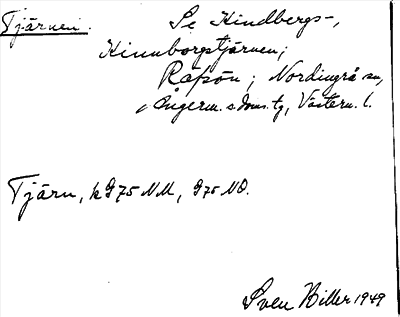 Tjärnen. Se Kindbergs-,
Kinnborgstjärnen;
Råpön; Nordingrå sn,
Ångerm. s doms. tg, Västern. l.
Tjärn, k 975 NM, 975 NO.
Sven Hiller 1949